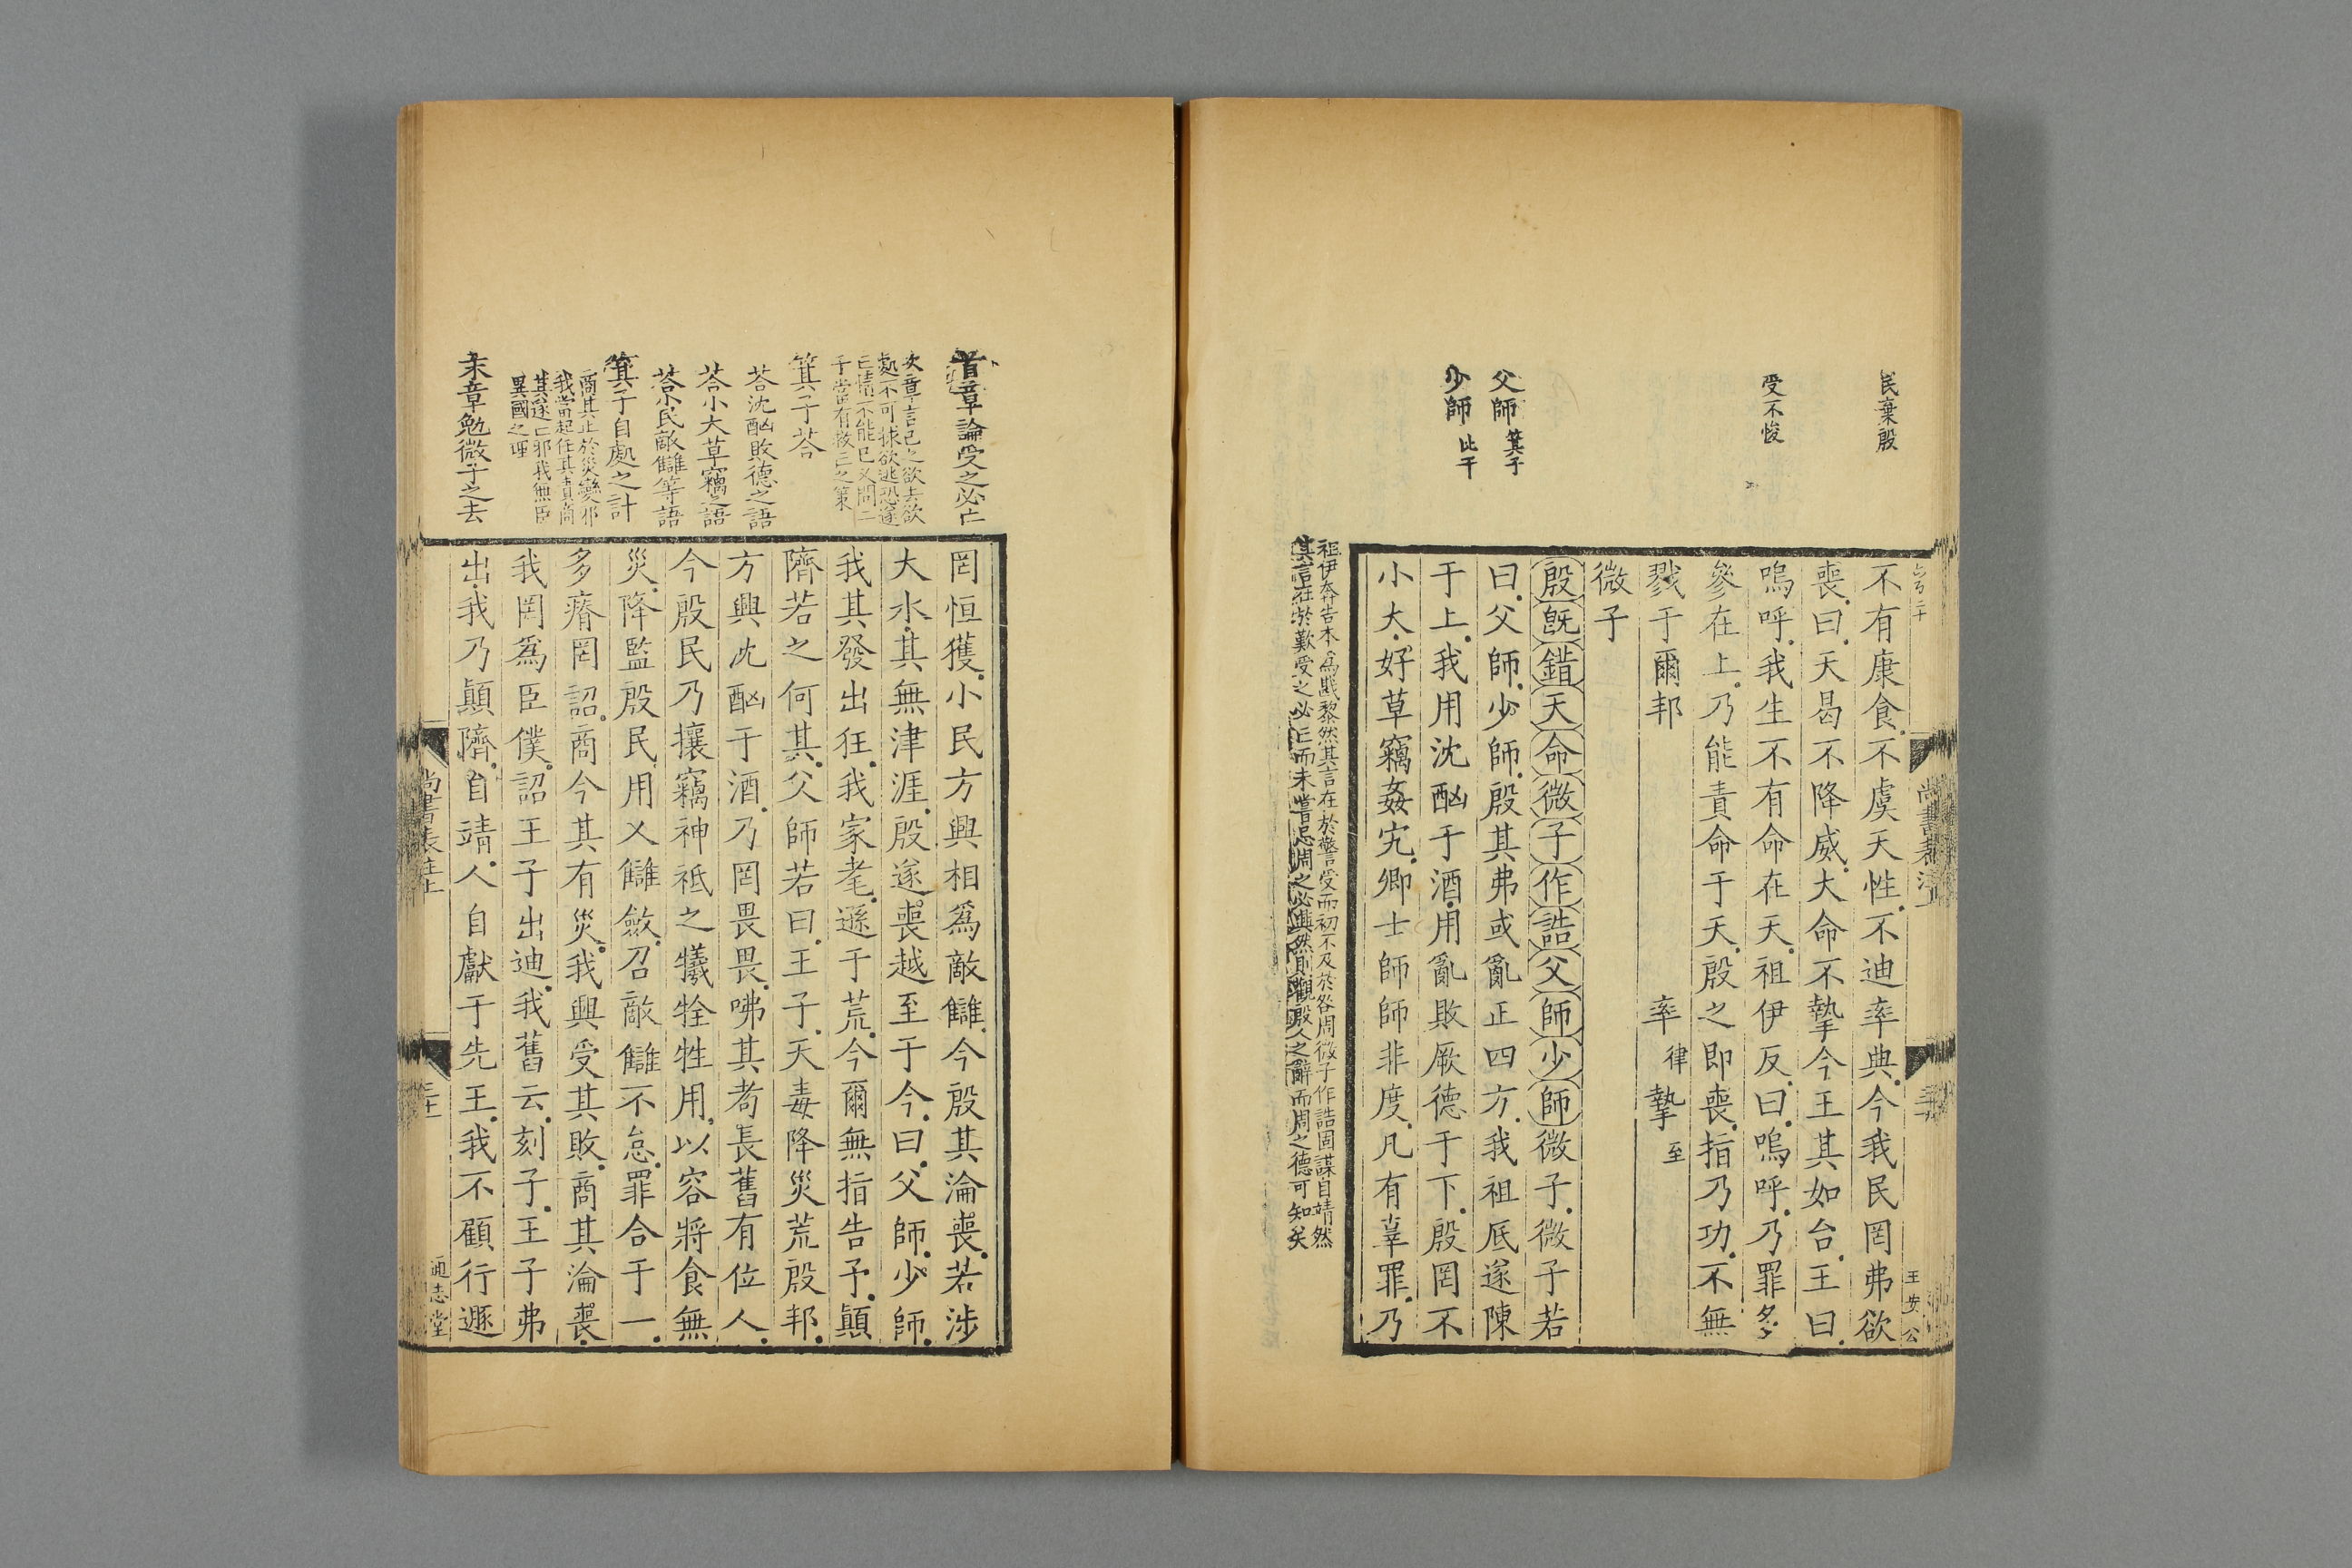 民棄殷
受不悛
父師 箕子
少師 比干
尚書表注上
王安公
不有康食不虞天性不迪率典今我民罔弗欲
喪曰天曷不降威大命不摯今王其如台王曰
嗚呼我生不有命在天祖伊反曰嗚呼乃罪多
參在上乃能責命于天殷之即喪指乃功不無
戮于爾邦 率 律 摯 至
微子
殷旣錯天命微子作誥父師少師微子微子若
曰父師少師殷其弗或亂正四方我祖厎遂陳
于上我用沈酗于酒用亂敗厥德于下殷罔不
小大好草竊姦宄卿士師師非度凡有辜罪乃
祖伊奔告本爲戡黎然其言在於警受而初不及於咎周微子作誥固謀自靖然
其言在於歎受之必亡而未嘗忌周之必興然則觀殷人之辭而周之德可知矣
首章論受之必亡
次章言己之欲去欲
處不可救欲逃恐遂
亡情不能已又問二
子當有救亡之策
箕子荅
荅沈酗敗德之語
荅小大草竊之語
荅小民敵讎等語
箕子自處之計
商其止於災變邪
我當起任其責商
其遂亡邪我無臣
異國之理
末章勉微子之去
罔恒獲小民方興相爲敵讎今殷其淪喪若涉
大水其無津涯殷遂喪越至于今曰父師少師
我其發出狂我家耄遜于荒今爾無指告予顛
隮若之何其父師若曰王子天毒降災荒殷邦
方興沈酗于酒乃罔畏畏咈其耉長舊有位人
今殷民乃攘竊神祇之犧牷牲用以容將食無
災降監殷民用乂讎斂召敵讎不怠罪合于一
多瘠罔詔商今其有災我興受其敗商其淪喪
我罔爲臣僕詔王子出迪我舊云刻子王子弗
出我乃顛隮自靖人自獻于先王我不顧行遯
尚書表注上
通志堂